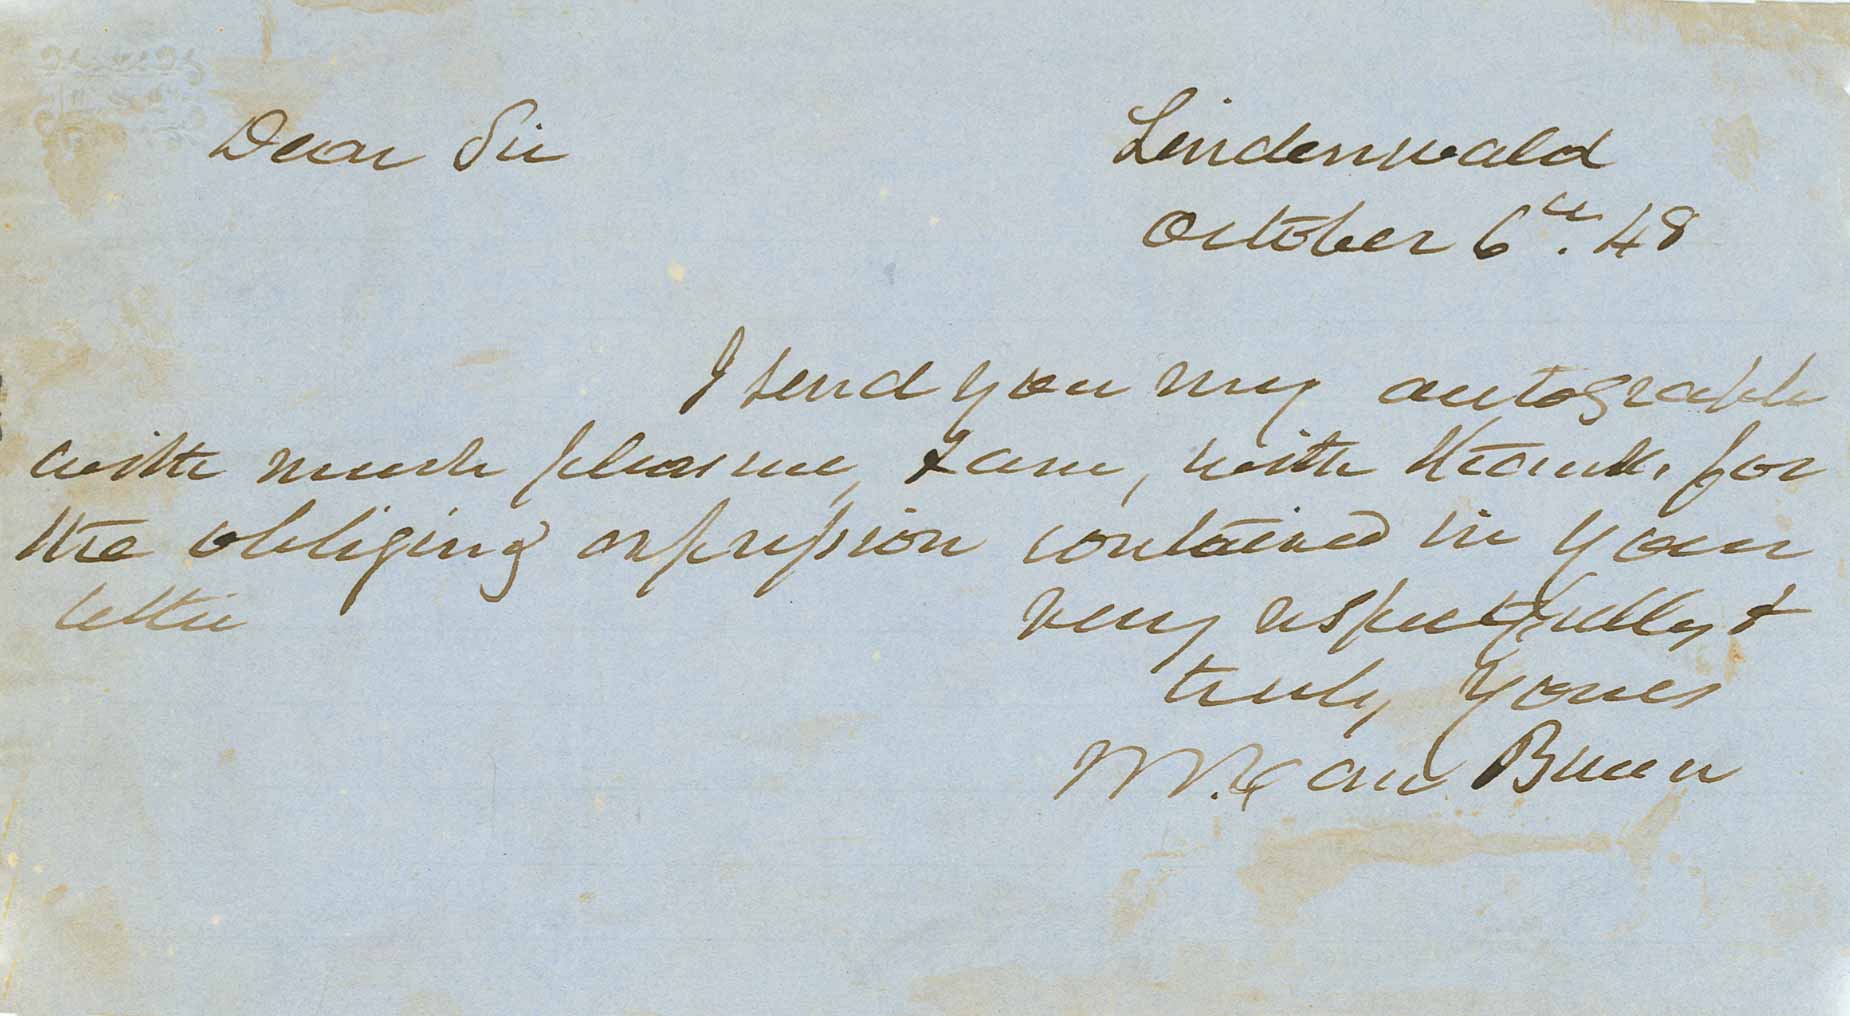 Dear Sir
Lindenwald
October 6th. 48
I send you my autograph
with much pleasure, & am, with thanks for
the obliging expression contained in your
letter very respectfully &
truly yours
M. Van Buren